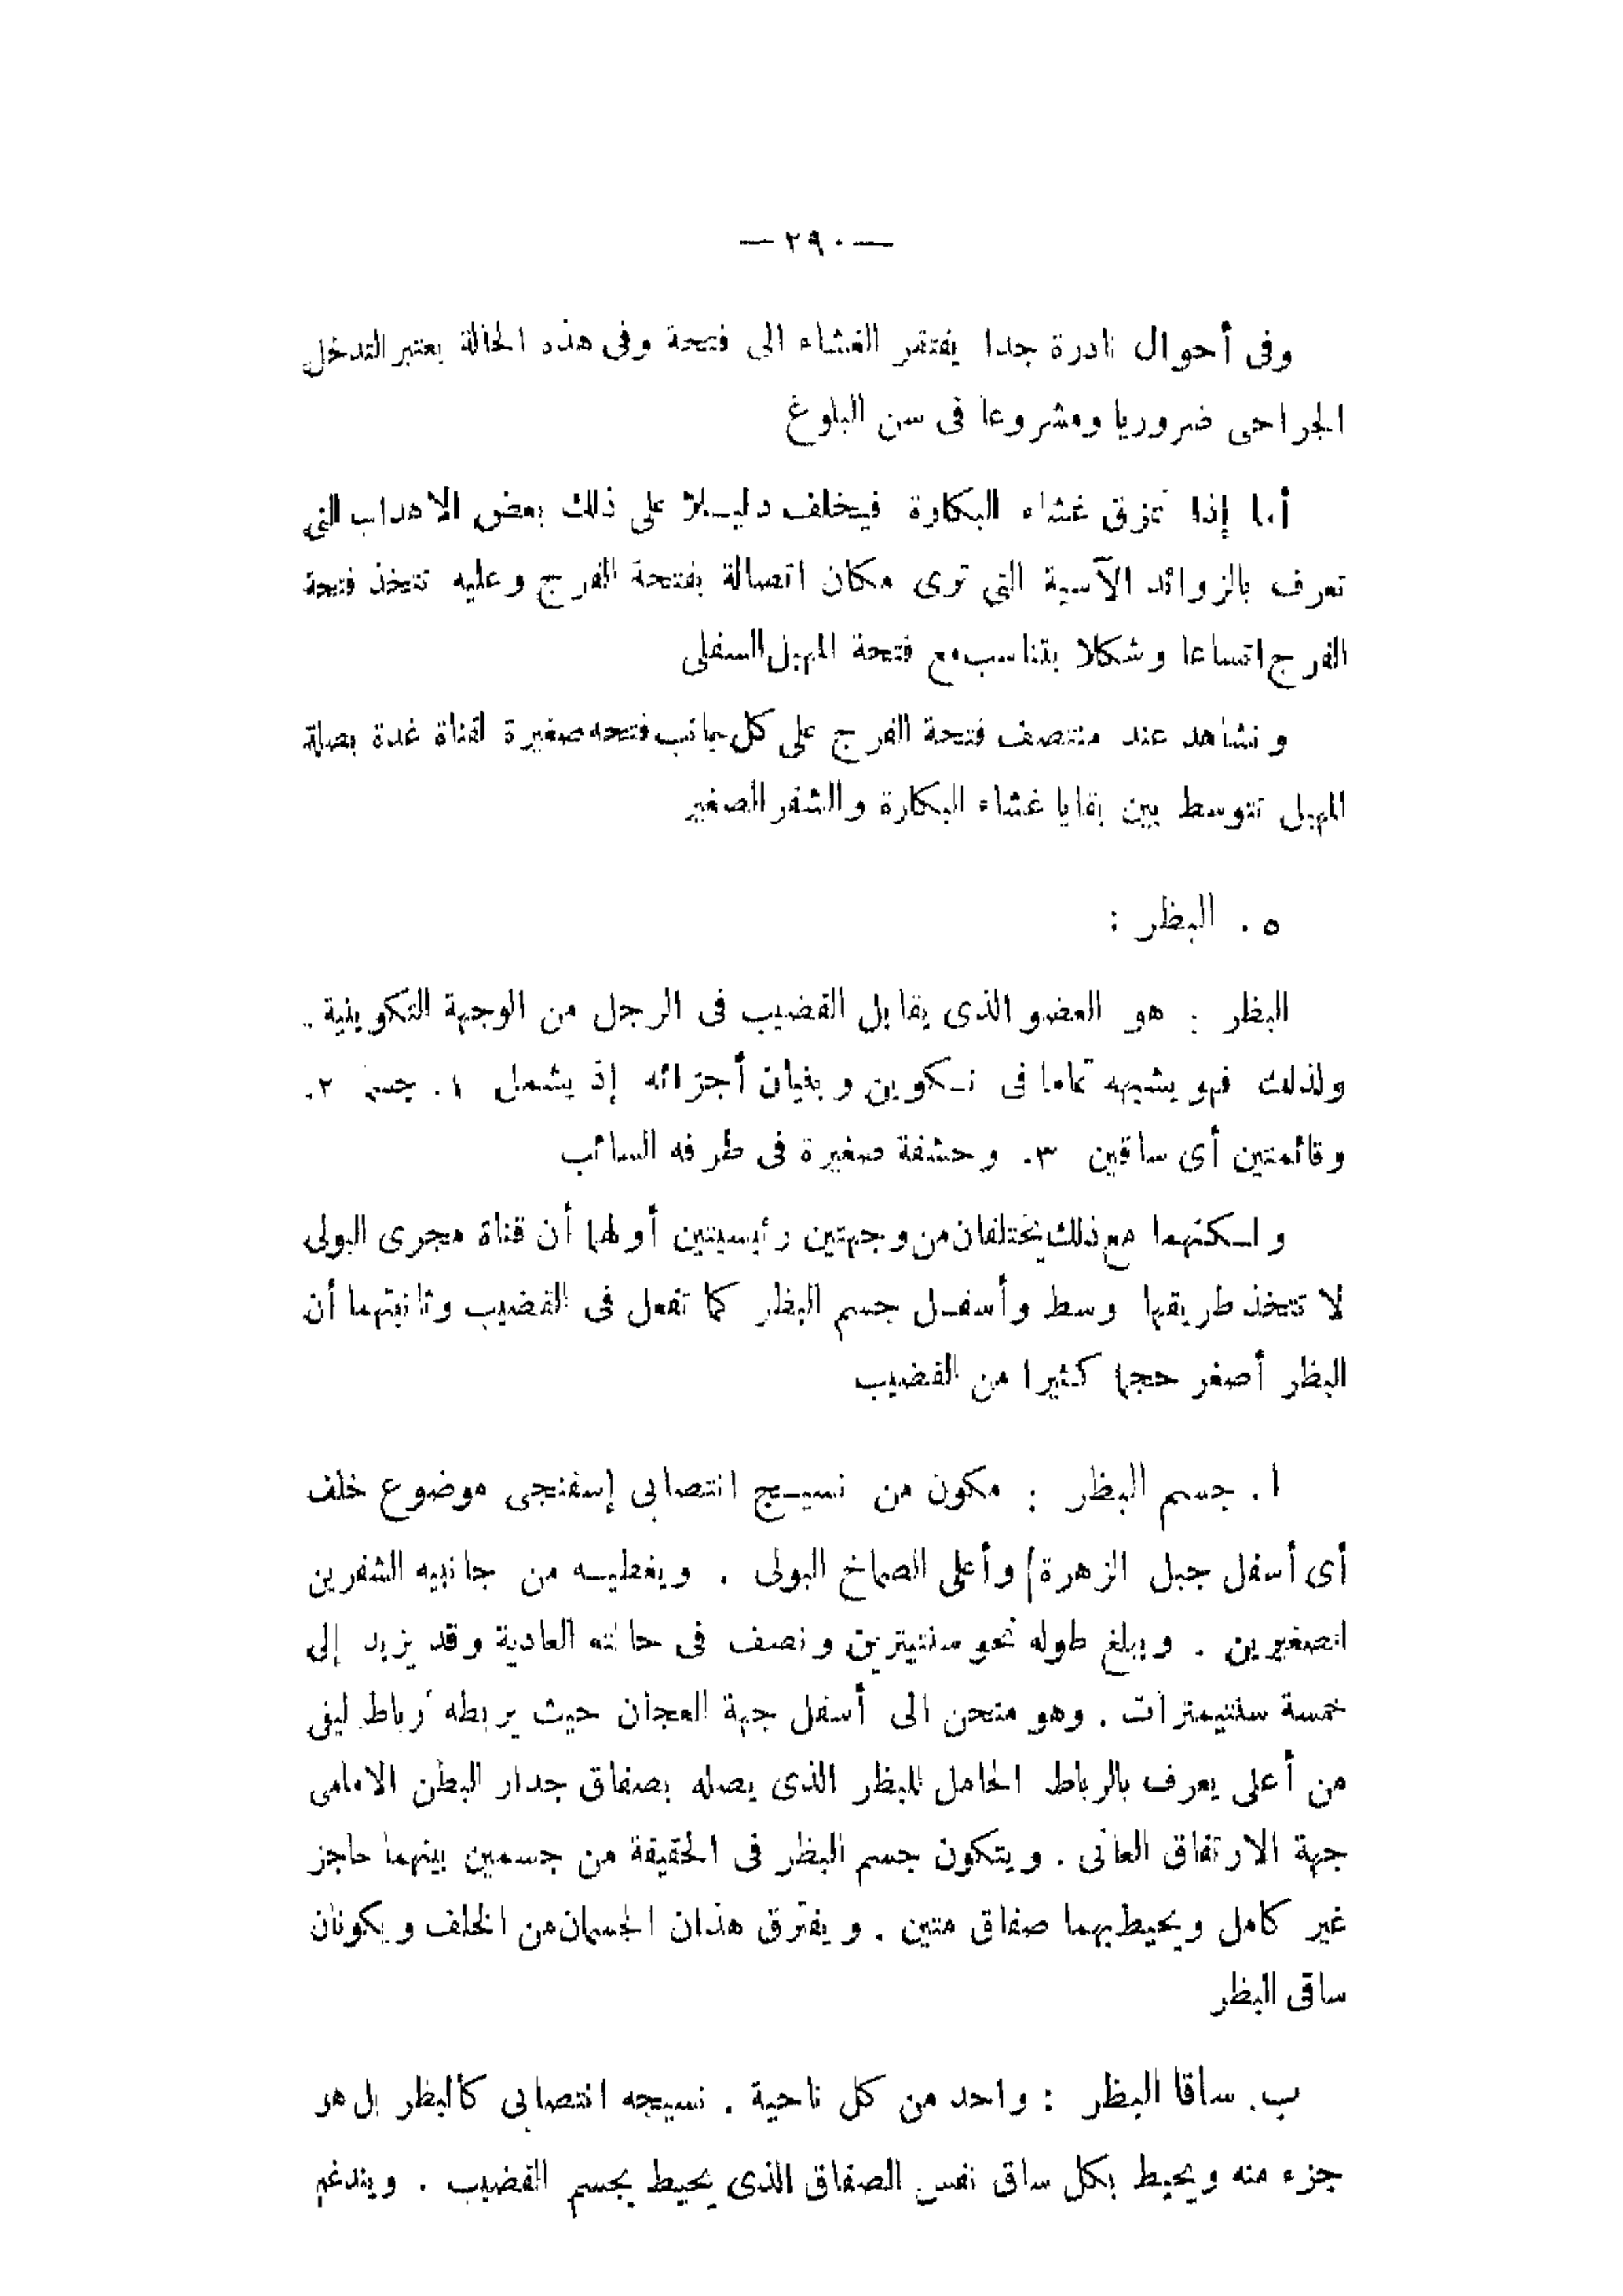 — ٢٩٠ —
وفى أحوال نادرة جدا يفتقر الغشاء الى فتحة وفى هذه الحالة يعتبر التدخل
الجراحى ضروريا ومشروعا فى سن البلوغ
أما إذا تمزق غشاء البكارة فيخلف دليلا على ذلك بعض الاهداب التى
تعرف بالزوائد الآسية التى ترى مكان اتصالة بفتحة الفرج وعليه تتخذ فتحة
الفرج اتساعا وشكلا يتناسب مع فتحة المهبل السفلى
ونشاهد عند منتصف فتحة الفرج على كل جانب فتحه صغيرة لقناة غدة بصلة
المهبل تتوسط بين بقايا غشاء البكارة والشفر الصغير
٥ . البظر :
البظر : هو العضو الذى يقابل القضيب فى الرجل من الوجهة التكوينية .
ولذلك فهو يشبهه تماما فى تكوين وبنيان أجزائه إذ يشمل ١. جسم ٢.
وقائمتين أى ساقين ٣. وحشفة صغيرة فى طرفه السائب
ولكنهما مع ذلك يختلفان من وجهتين رئيسيتين أولهما أن قناة مجرى البولى
لا تتخذ طريقها وسط وأسفل جسم البظر كما تفعل فى القضيب وثانيتهما أن
البظر أصغر حجما كثيرا من القضيب
ا . جسم البظر : مكون من نسيج انتصابى إسفنجى موضوع خلف
أى أسفل جبل الزهرة وأعلى الصماخ البولى . ويغطيه من جانبيه الشفرين
الصغيرين . ويبلغ طوله نحو سنتيترين ونصف فى حالته العادية وقد يزيد إلى
خمسة سنتيمترات . وهو منحن الى أسفل جهة العجان حيث يربطه رباط ليفى
من أعلى يعرف بالرباط الحامل للبظر الذى يصله بصفاق جدار البطن الامامى
جهة الارتفاق العانى . ويتكون جسم البظر فى الحقيقة من جسمين بينهما حاجز
غير كامل ويحيط بهما صفاق متين . ويفترق هذان الجسمان من الخلف ويكونان
ساقى البظر
ب . ساقا البظر : واحد من كل ناحية . نسيجه انتصابى كالبظر بل هو
جزء منه ويحيط بكل ساق نفس الصفاق الذى يحيط بجسم القضيب . ويندغم